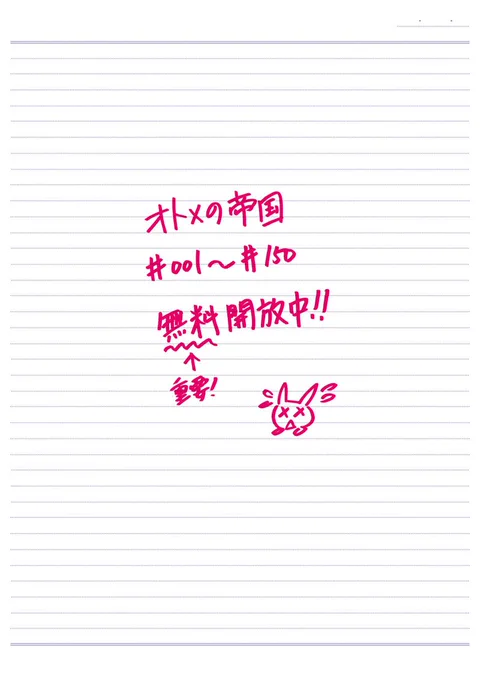 オトメの帝国
#001〜#150
無料開放中!!
↑
重要!